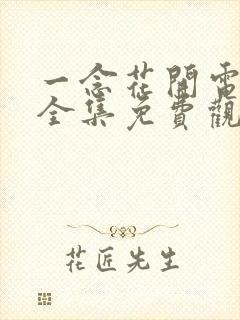 一念花開電
全集免費觀
花匠先生